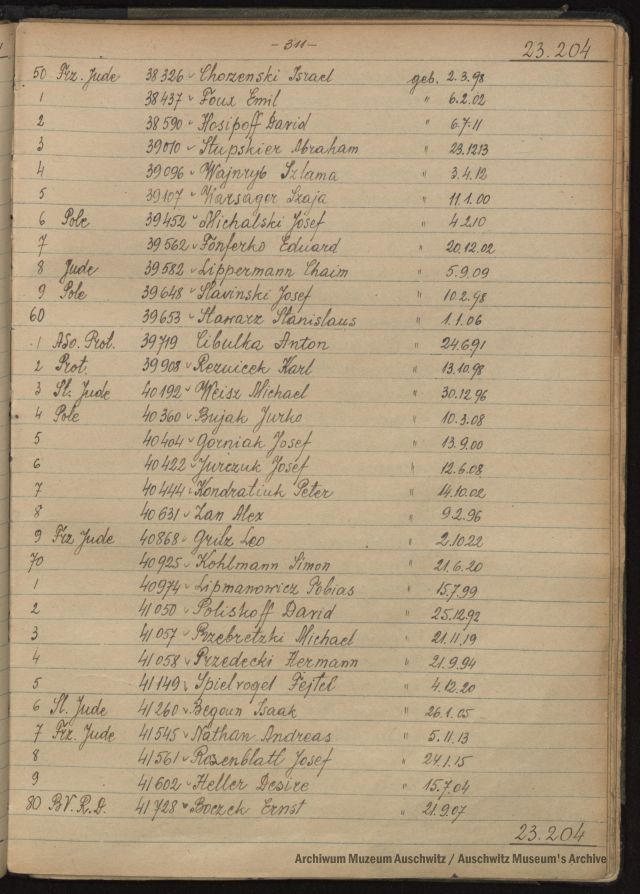 - 311 -
23.204
50 Frz. Jude 38326 Chorzenski Israel geb. 2.3.98
1 38437 Foux Emil " 6.2.02
2 38590 Hosipoff David " 6.7.11
3 39010 Stupskier Abraham " 23.12.13
4 39096 Wajnryb Szlama " 3.4.12
5 39107 Warsager Szaja " 11.1.00
6 Pole 39452 Michalski Josef " 4.2.10
7 39562 Fonferko Eduard " 20.12.02
8 Jude 39582 Lippermann Chaim " 5.9.09
9 Pole 39648 Slavinski Josef " 10.2.98
60 39653 Stawarz Stanislaus " 1.1.06
1 Aso. Prot. 39719 Cibulka Anton " 24.6.91
2 Prot. 39908 Reznicek Karl " 13.10.98
3 Sl. Jude 40192 Weisz Michael " 30.12.96
4 Pole 40360 Bujak Jurko " 10.3.08
5 40404 Gorniak Josef " 13.9.00
6 40422 Jurczuk Josef " 12.6.08
7 40444 Kondratiuk Peter " 14.10.02
8 40631 Zan Alex " 9.2.96
9 Frz Jude 40868 Grilz Leo " 2.10.22
70 40925 Kohlmann Simon " 21.6.20
1 40974 Lipmanowicz Tobias " 15.7.99
2 41050 Poliskoff David " 25.12.92
3 41057 Przebretzki Michael " 21.11.19
4 41058 Przedecki Hermann " 21.9.94
5 41149 Spielvogel Fejtel " 4.12.20
6 Sl. Jude 41260 Begoun Isaak " 26.1.05
7 Frz. Jude 41545 Nathan Andreas " 5.11.13
8 41561 Rosenblatt Josef " 24.1.15
9 41602 Heller Desire " 15.7.04
80 BV. R.D. 41728 Boczek Ernst " 21.9.07
23.204
Archiwum Muzeum Auschwitz / Auschwitz Museum's Archive